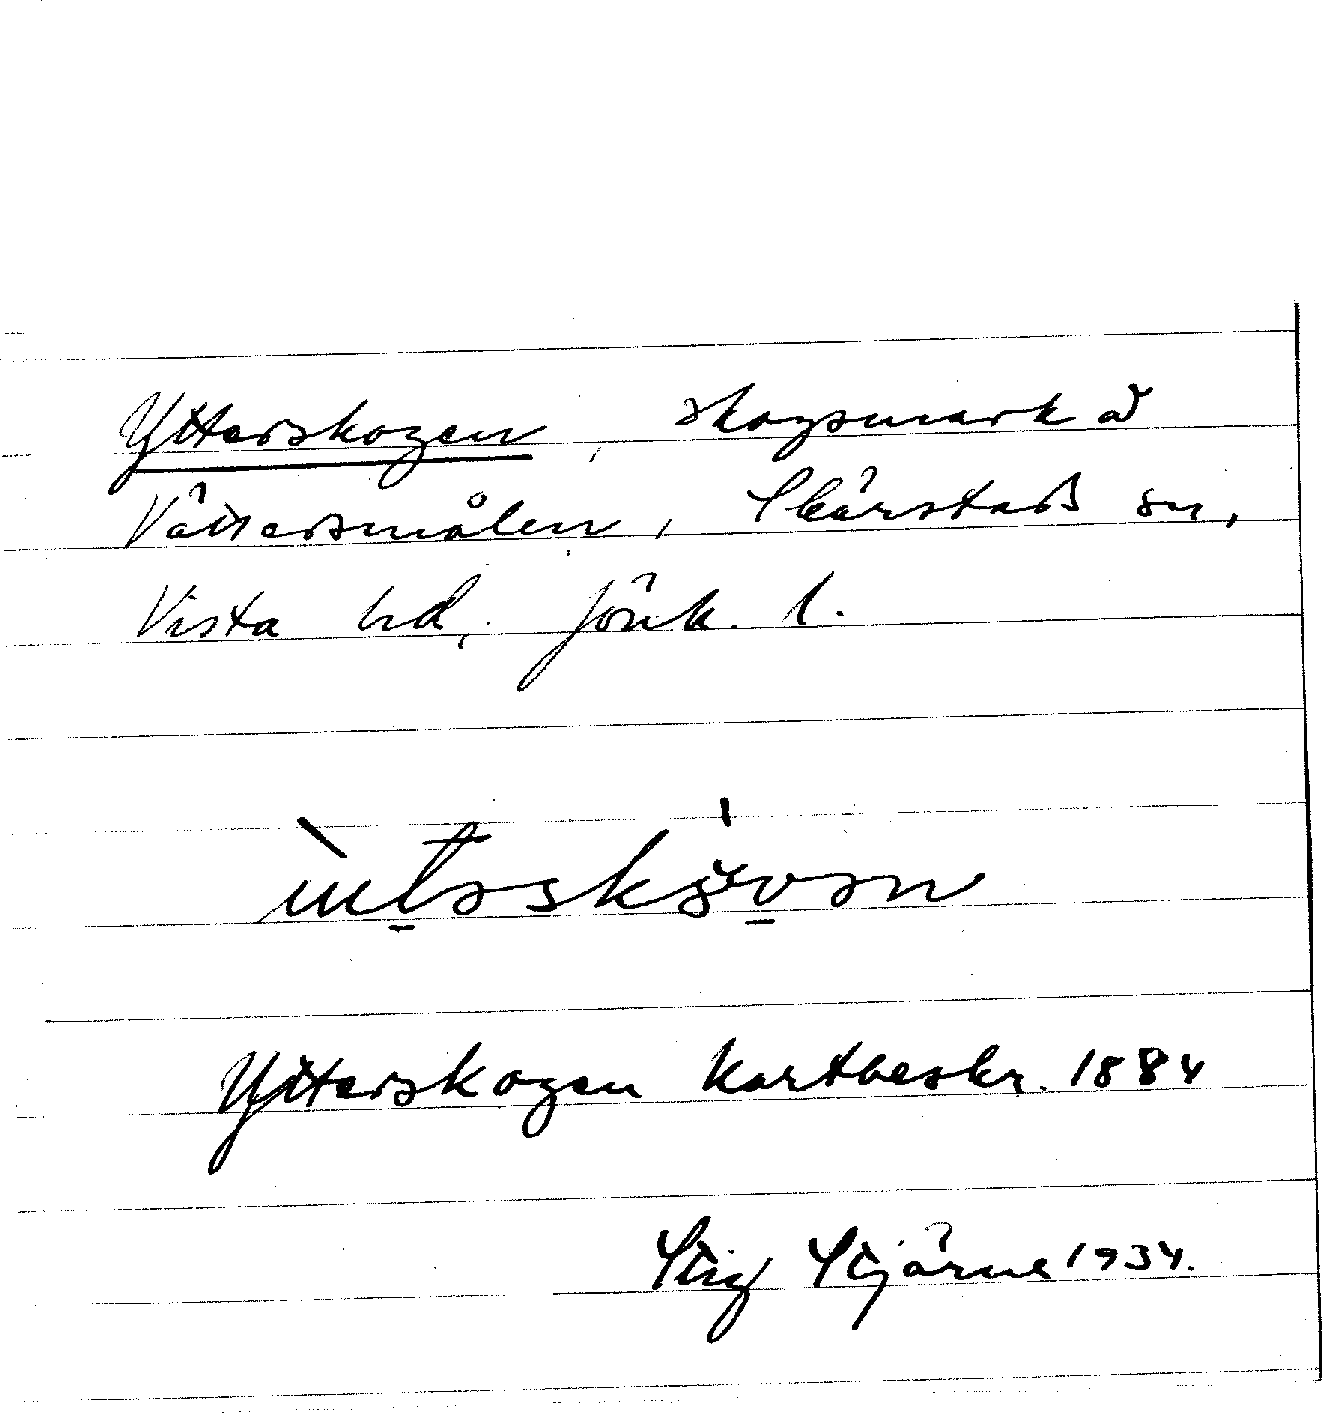 Ytterskogen, skogsmark å
Vättersmålen, Skärstads sn,
Vista hd, Jönk. l.
Ytterskogen Kartbeskr. 1884
Stig Stjärne 1934.